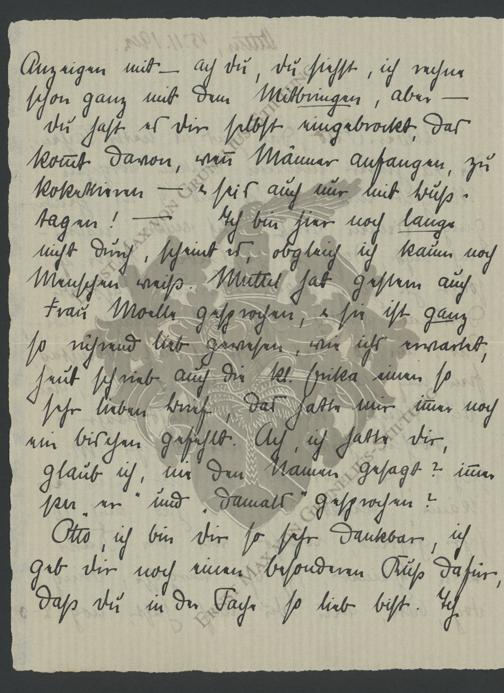 Anzeigen mit — ach du, du siehst, ich rechne
schon ganz mit dem Mitbringen, aber —
du hast es dir selbst eingebrockt, das
kom̅t davon, wen̅ Männer anfangen, zu
kokettieren — & sei's auch nur mit Buß-
tagen! — Ich bin hier noch lange
nicht durch, scheint es, obgleich ich kaum noch
Menschen weiß. Muttel hat gestern auch
Frau Moelle gesprochen, & sie ist ganz
so rührend lieb gewesen, wie ich's erwartet,
heut schrieb auch die kl. Erika einen so
sehr lieben Brief, das hatte mir im̅er noch
ein bischen gefehlt. Ach, ich hatte dir,
glaub ich, nie den Namen gesagt? im̅er
"er" und "damals" gesprochen?
Otto, ich bin dir so sehr dankbar, ich
geb dir noch einen besonderen Kuß dafür,
daß du in der Sache so lieb bist. Ich